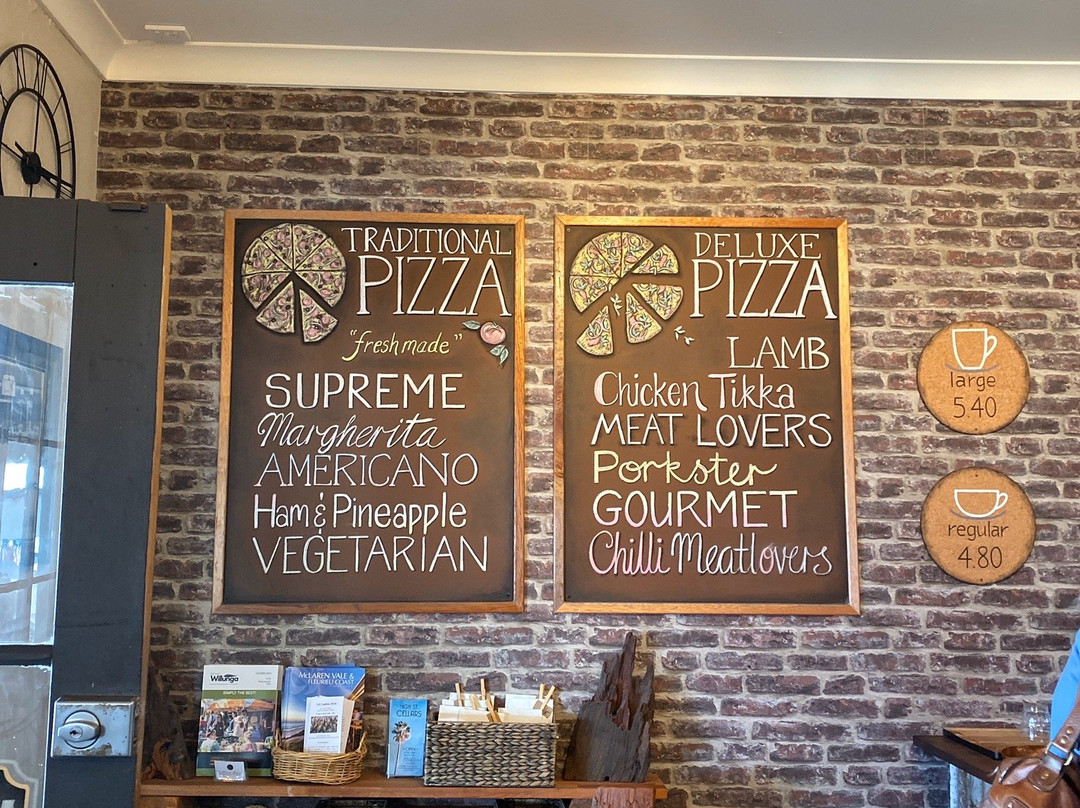 TRADITIONAL
PIZZA
"fresh made"
SUPREME
Margherita
AMERICANO
Ham & Pineapple
VEGETARIAN
DELUXE
PIZZA
LAMB
Chicken Tikka
MEAT LOVERS
Porkster
GOURMET
Chilli Meatlovers
large
5.40
regular
4.80
Willunga
SIMPLY THE BEST!
MCLAREN VALE &
FLEURIEU COAST
HIGH ST.
CELLARS
OPEN